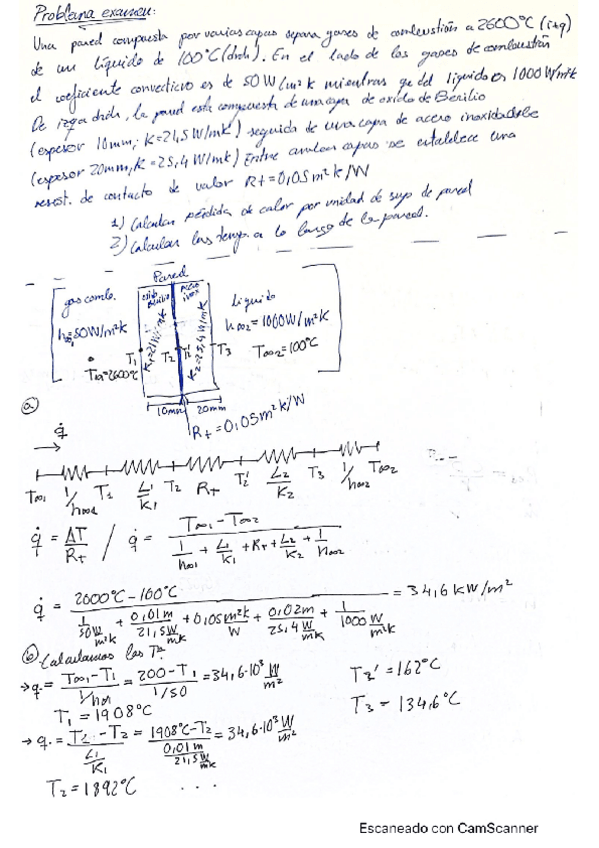 Problema examen:
Una pared compuesta por varias capas separa gases de combustión a 2600°C (izq)
de un líquido de 100°C (dcha). En el lado de los gases de combustión
el coeficiente convectivo es de 50W/m²k mientras q el del líquido es 1000W/m²k
De izq a dcha, la pared está compuesta de una capa de oxido de Berilio
(espesor 10mm; K=21,5W/mk) seguida de una capa de acero inoxidable
(espesor 20mm, K=25,4W/mk) Entre ambas capas se establece una
resist. de contacto de valor Rt=0,05m²k/W
1) Calcular pérdida de calor por unidad de sup de pared
2) Calcular las temp. a lo largo de la pared.
Pared
gas comb. oxido Berilio acero inox líquido
h∞1=50W/m²k K2=25,4W/mk h∞2=1000W/m²k
T∞1=2600°C T1 T2 T2' T3 T∞2=100°C
10mm 20mm
Rt=0,05m²k/W
a
q̇
T∞1 1/h∞1 T1 L1/K1 T2 Rt T2' L2/K2 T3 1/h∞2 T∞2
q̇ = ΔT/Rt / q̇ = (T∞1-T∞2)/(1/h∞1 + L1/K1 + Rt + L2/K2 + 1/h∞2)
q̇ = (2600°C-100°C)/(1/50W/m²k + 0,01m/21,5W/mk + 0,05m²k/W + 0,02m/25,4W/mk + 1/1000W/m²k) = 34,6kW/m²
b Calculamos las Tª:
→ q. = (T∞1-T1)/(1/h∞1) = (200-T1)/(1/50) = 34,6·10³ W/m² T2'=162°C
T1=1908°C T3=134,6°C
→ q. = (T1-T2)/(L1/K1) = (1908°C-T2)/(0,01m/21,5W/mk) = 34,6·10³ W/m²
T2=1892°C ...
Escaneado con CamScanner